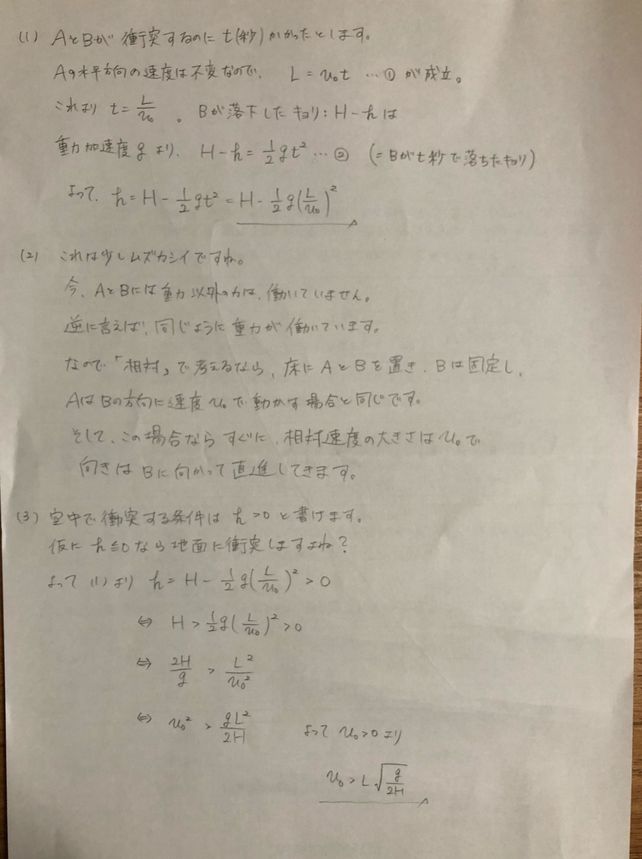 (1) AとBが衝突するのに t(秒)かかったとします。
Aの水平方向の速度は不変なので、 L = v₀t …① が成立。
これより t = L/v₀ 。 Bが落下したキョリ: H-h は
重力加速度gより、 H-h = 1/2gt² …② (=Bがt秒で落ちたキョリ)
よって、 h = H - 1/2gt² = H - 1/2g(L/v₀)²
(2) これは少しムズカシイですね。
今、AとBには重力以外の力は、働いていません。
逆に言えば、同じように重力が働いています。
なので「相対」で考えるなら、床にAとBを置き、Bは固定し、
AはBの方向に速度v₀で動かす場合と同じです。
そして、この場合ならすぐに、相対速度の大きさはv₀で
向きはBに向かって直進してきます。
(3) 空中で衝突する条件は h>0 と書けます。
仮に h≦0 なら地面に衝突しますよね?
よって (1) より h = H - 1/2g(L/v₀)² > 0
⇔ H > 1/2g(L/v₀)² > 0
⇔ 2H/g > L²/v₀²
⇔ v₀² > gL²/2H よって v₀>0 より
v₀ > L√(g/2H)